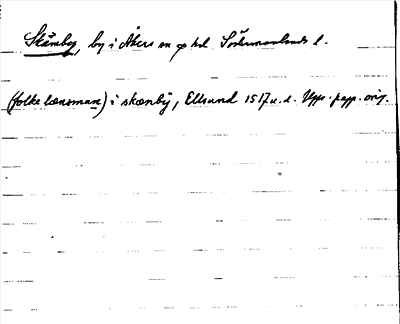 Skämby, by i Åkers sn o hd. Södermanlands l.
(folke lænsman) i skænby, Ellsund 1517 u.d. Upps. papp. orig.